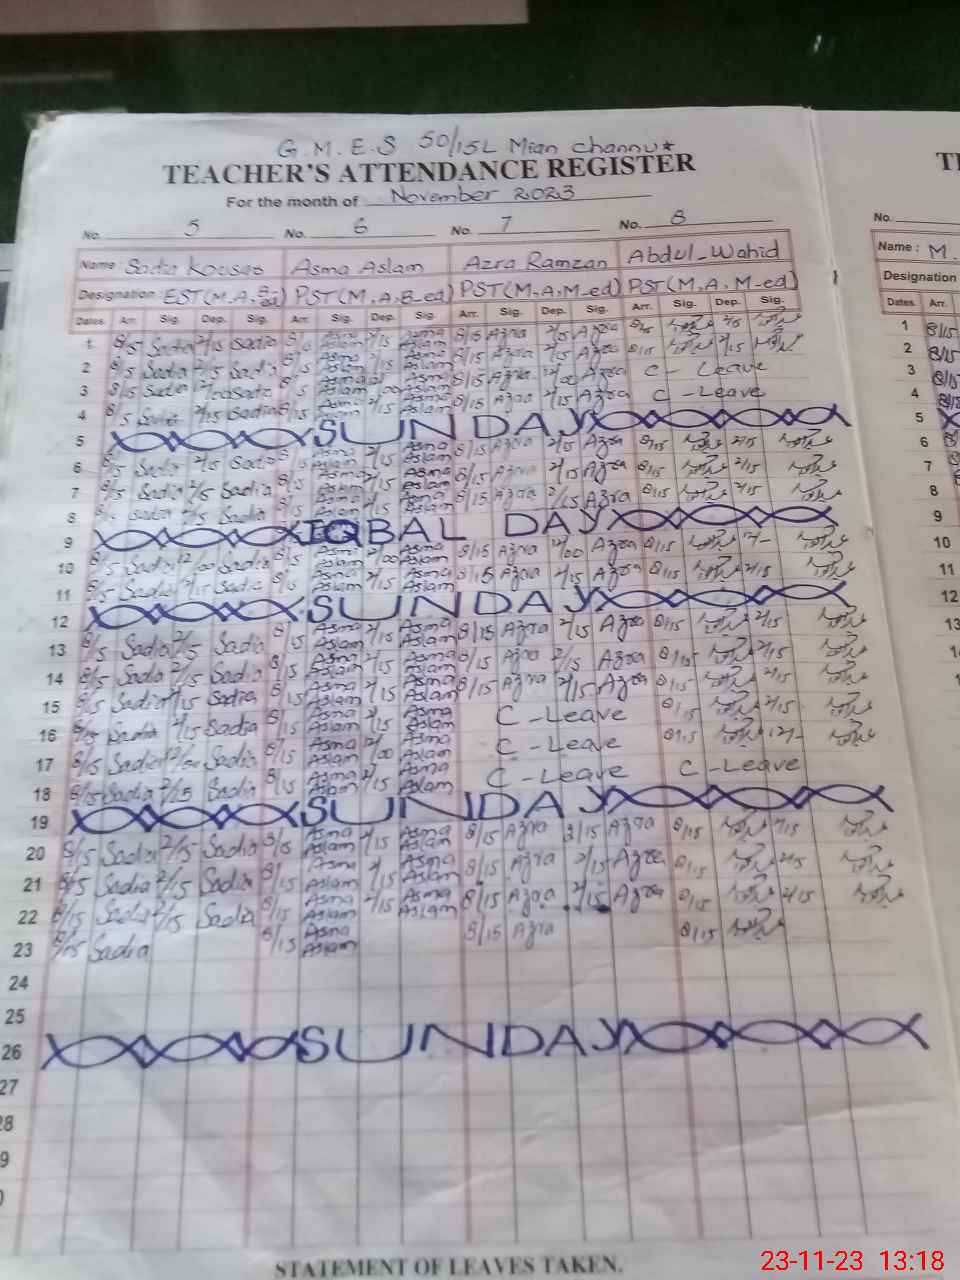 G.M.E.S 50/15L Mian channu
TEACHER'S ATTENDANCE REGISTER
For the month of November 2023
No. 5 No. 6 No. 7 No. 8 No.
Name: Sadia Kousar Asma Aslam Azra Ramzan Abdul_Wahid Name: M.
Designation: EST(M.A,B-ed) PST(M.A,B_ed) PST(M,A,M_ed) PST(M,A,M-ed) Designation
Dates Arr. Sig. Dep. Sig. Arr. Sig. Dep. Sig. Arr. Sig. Dep. Sig. Arr. Sig. Dep. Sig. Dates Arr.
1 8/15 Sadia 2/15 Sadia 8/15 Asma Aslam 2/15 Asma Aslam 8/15 Azra 2/15 Azra 8/15 2/15 1 8/15
2 8/15 Sadia 2/15 Sadia 8/15 Asma Aslam 2/15 Asma Aslam 8/15 Azra 2/15 Azra 8/15 2/15 2 8/15
3 8/15 Sadia 12/00 Sadia 8/15 Asma Aslam 12/00 Asma Aslam 8/15 Azra 12/00 Azra C - Leave 3
4 8/15 Sadia 2/15 Sadia 8/15 Asma Aslam 2/15 Asma Aslam 8/15 Azra 2/15 Azra C - Leave 4
5 SUNDAY 5
6 8/15 Sadia 2/15 Sadia 8/15 Asma Aslam 2/15 Asma Aslam 8/15 Azra 2/15 Azra 8/15 2/15 6
7 8/15 Sadia 2/15 Sadia 8/15 Asma Aslam 2/15 Asma Aslam 8/15 Azra 2/15 Azra 8/15 2/15 7
8 8/15 Sadia 2/15 Sadia 8/15 Asma Aslam 2/15 Asma Aslam 8/15 Azra 2/15 Azra 8/15 2/15 8
9 IQBAL DAY 9
10 8/15 Sadia 12/00 Sadia 8/15 Asma Aslam 12/00 Asma Aslam 8/15 Azra 12/00 Azra 8/15 12/- 10
11 8/15 Sadia 2/15 Sadia 8/15 Asma Aslam 2/15 Asma Aslam 8/15 Azra 2/15 Azra 8/15 2/15 11
12 SUNDAY 12
13 8/15 Sadia 2/15 Sadia 8/15 Asma Aslam 2/15 Asma Aslam 8/15 Azra 2/15 Azra 8/15 2/15 13
14 8/15 Sadia 2/15 Sadia 8/15 Asma Aslam 2/15 Asma Aslam 8/15 Azra 2/15 Azra 8/15 2/15
15 8/15 Sadia 2/15 Sadia 8/15 Asma Aslam 2/15 Asma Aslam 8/15 Azra 2/15 Azra 8/15 2/15
16 8/15 Sadia 2/15 Sadia 8/15 Asma Aslam 2/15 Asma Aslam C - Leave 8/15 2/15
17 8/15 Sadia 12/00 Sadia 8/15 Asma Aslam 12/00 Asma Aslam C - Leave 8/15 12/-
18 8/15 Sadia 2/15 Sadia 8/15 Asma Aslam 2/15 Asma Aslam C - Leave C - Leave
19 SUNDAY
20 8/15 Sadia 2/15 Sadia 8/15 Asma Aslam 2/15 Asma Aslam 8/15 Azra 2/15 Azra 8/15 2/15
21 8/15 Sadia 2/15 Sadia 8/15 Asma Aslam 2/15 Asma Aslam 8/15 Azra 2/15 Azra 8/15 2/15
22 8/15 Sadia 2/15 Sadia 8/15 Asma Aslam 2/15 Asma Aslam 8/15 Azra 2/15 Azra 8/15 2/15
23 8/15 Sadia 8/15 Asma Aslam 8/15 Azra 8/15
24
25
26 SUNDAY
27
STATEMENT OF LEAVES TAKEN.
23-11-23 13:18